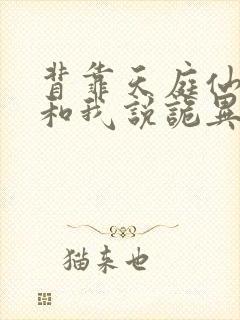 背靠天庭仙
和我说诡异
猫来也